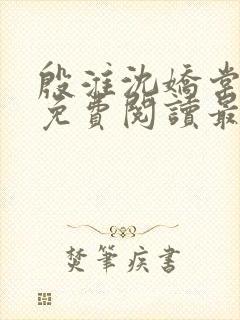 殷漼沈嬌棠
免費閱讀最
焚筆疾書